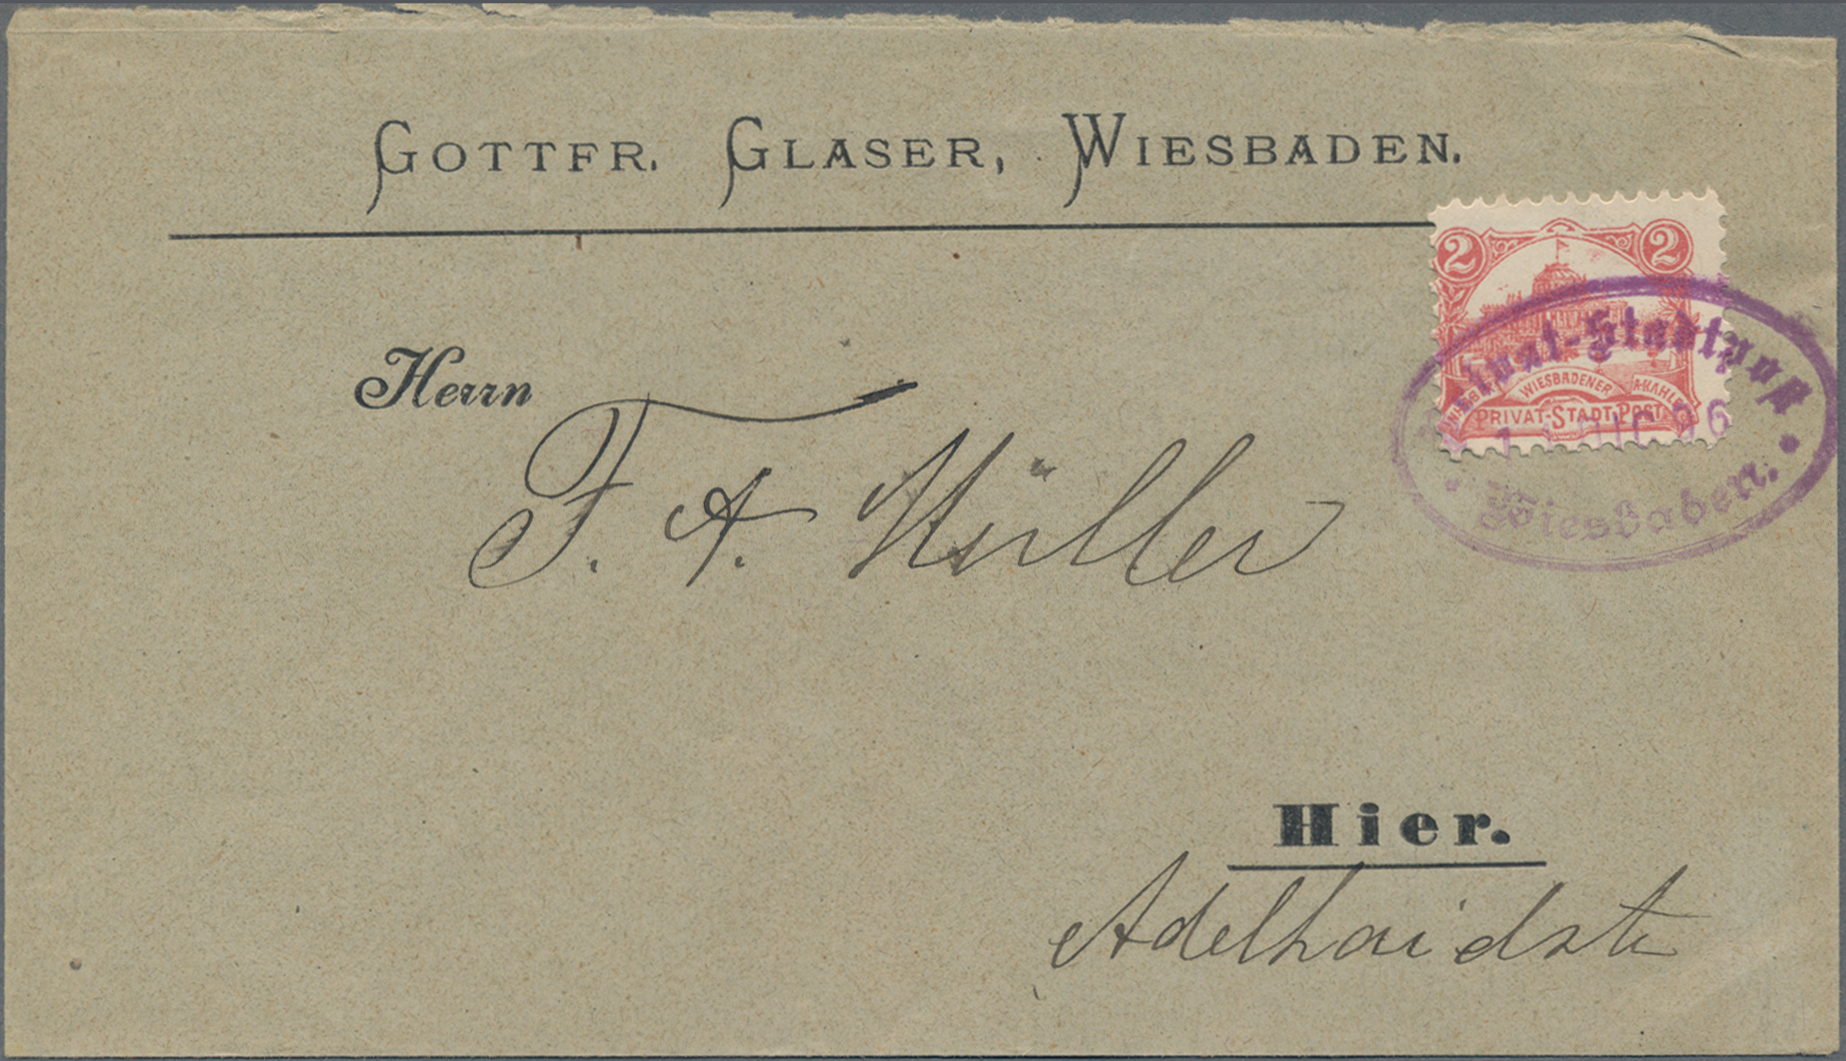 GOTTFR. GLASER, WIESBADEN.
2 2
Herrn
Privat-Stadtpost
WIESBADENER
PRIVAT-STADT-POST.
96
Wiesbaden.
F. A. Müller
Hier.
Adelhaidstr